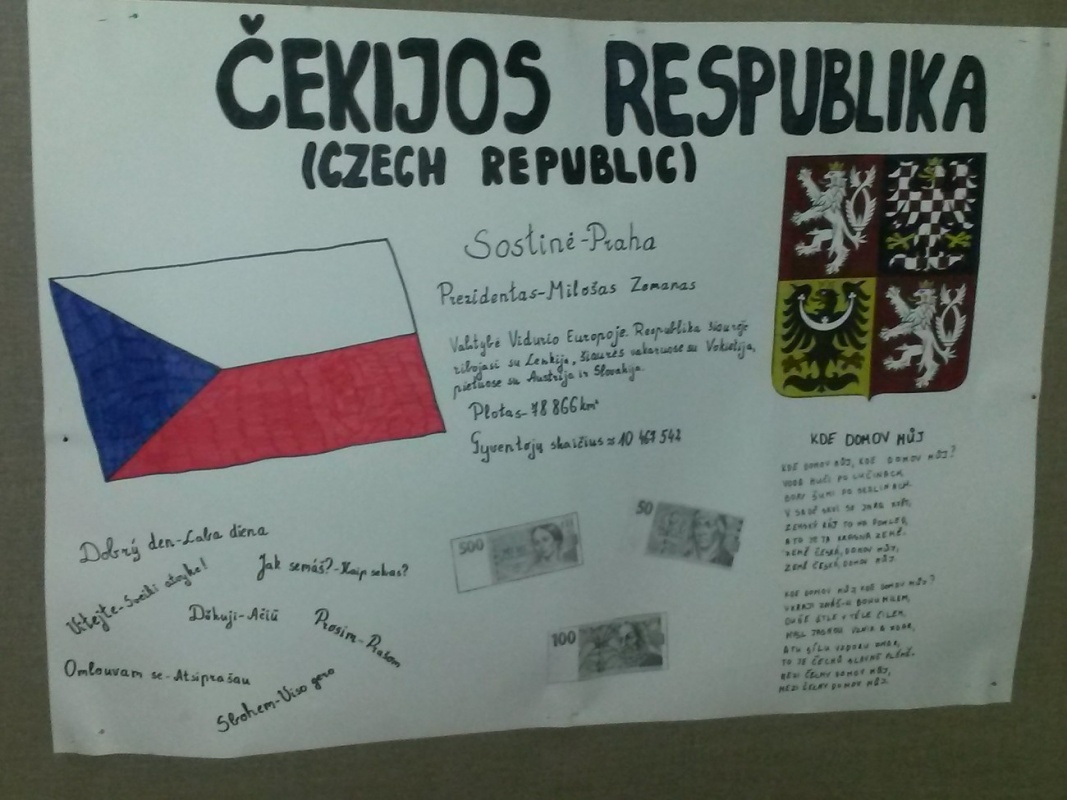 ČEKIJOS RESPUBLIKA
(CZECH REPUBLIC)
Sostinė-Praha
Prezidentas-Milošas Zemanas
Valstybė Vidurio Europoje. Respublika šiaurėje
ribojasi su Lenkija, šiaurės vakaruose su Vokietija,
pietuose su Austrija ir Slovakija.
Plotas-78 866 km²
Gyventojų skaičius ≈ 10 467 542
Dobrý den-Laba diena
Vítejte-Sveiki atvykę!
Jak semáš?-Kaip sekas?
Děkuji-Ačiū
Prosím-Prašom
Omlouvam se-Atsiprašau
Sbohem-Viso gero
500
50
100
KDE DOMOV MŮJ
KDE DOMOV MŮJ, KDE DOMOV MŮJ?
VODA HUČÍ PO LUČINÁCH,
BORY ŠUMÍ PO SKALINÁCH,
V SADĚ SKVÍ SE JARA KVĚT,
ZEMSKÝ RÁJ TO NA POHLED,
A TO JE TA KRÁSNÁ ZEMĚ.
ZEMĚ ČESKÁ, DOMOV MŮJ,
ZEMĚ ČESKÁ, DOMOV MŮJ.
KDE DOMOV MŮJ, KDE DOMOV MŮJ?
V KRAJI ZNÁŠ-LI BOHUMILÉM,
DUŠE ÚTLÉ V TĚLE ČILÉM,
MYSL JASNOU, VZNIK A ZDAR,
A TU SÍLU VZDORU ZMAR,
TO JE ČECHŮ SLAVNÉ PLÉMĚ.
MEZI ČECHY DOMOV MŮJ,
MEZI ČECHY DOMOV MŮJ.